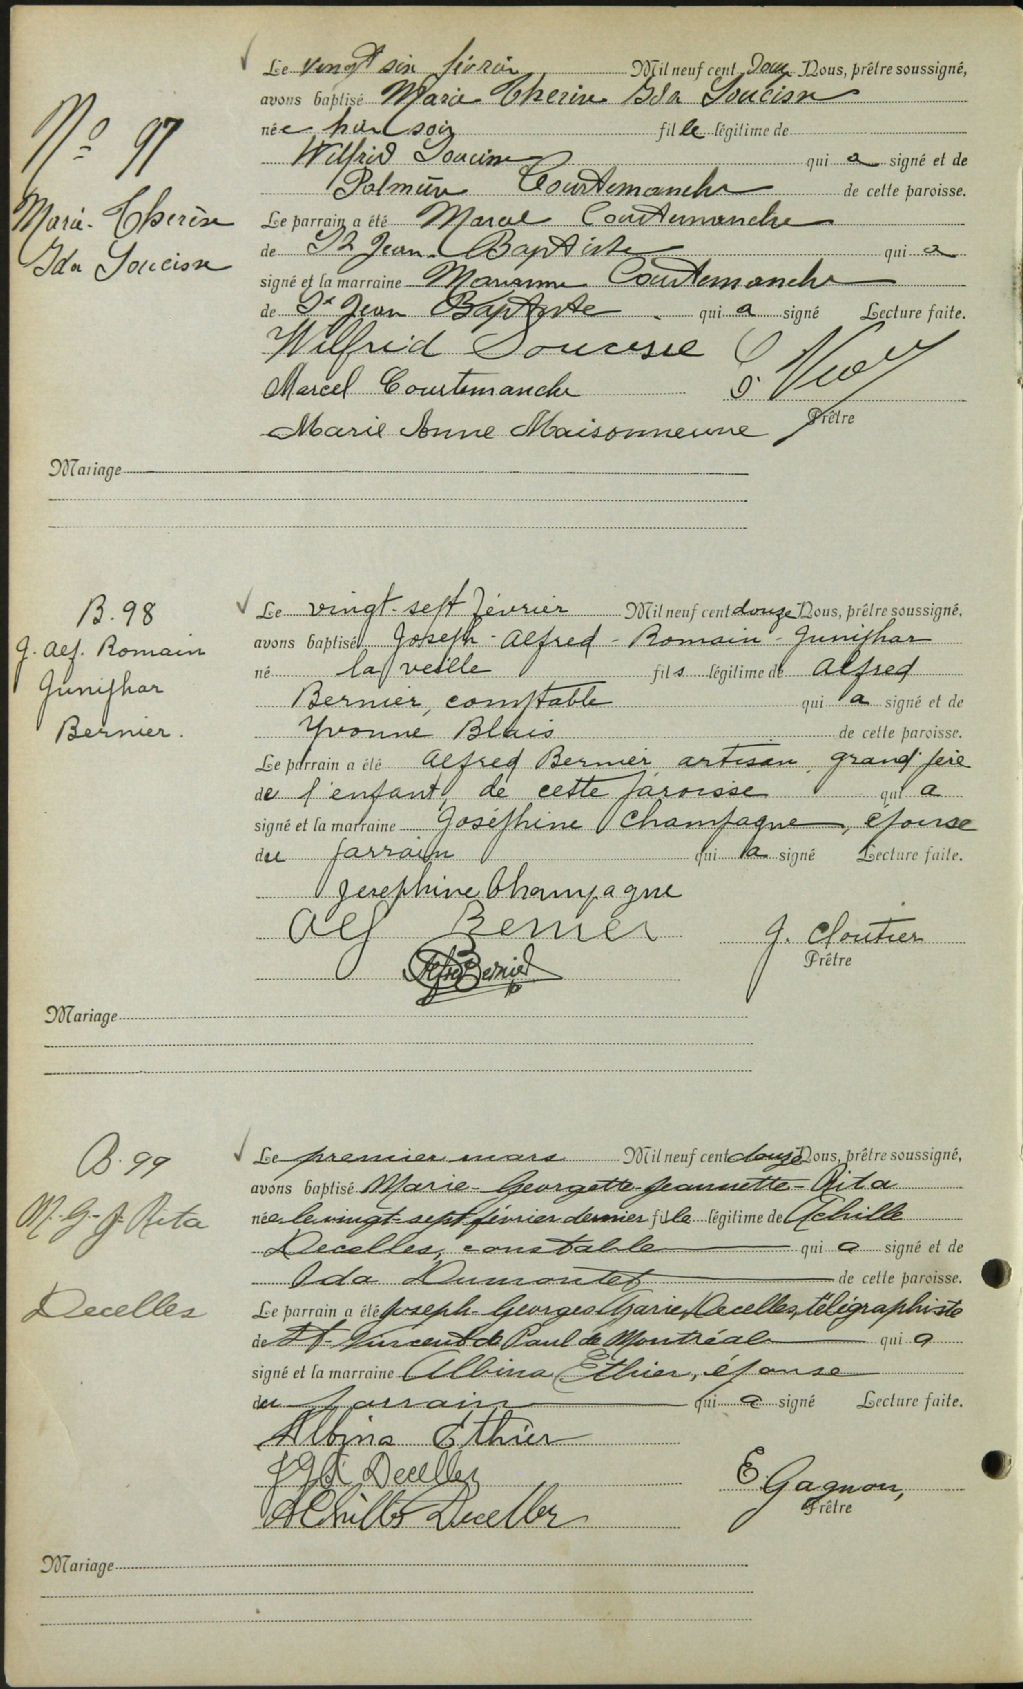 Le vingt six février Mil neuf cent douze Nous, prêtre soussigné,
avons baptisé Marie Therèse Ida Soucisse
née hier soir fille légitime de
No 97
Wilfrid Soucisse qui a signé et de
Palmire Courtemanche de cette paroisse.
Marie-Therèse
Le parrain a été Marcel Courtemanche
Ida Soucisse
de St Jean-Baptiste qui a
signé et la marraine Courtemanche
de St Jean Baptiste qui a signé Lecture faite.
Wilfrid Soucisse
Marcel Courtemanche
Prêtre
Marie Anne Maisonneuve
Mariage
B. 98
Le vingt-sept février Mil neuf cent douze Nous, prêtre soussigné,
J. Alf. Romain
avons baptisé Joseph-Alfred-Romain-Juniphar
né la veille fils légitime de Alfred
Juniphar
Bernier, comptable qui a signé et de
Bernier.
Yvonne Blais de cette paroisse.
Le parrain a été Alfred Bernier, artisan, grand'père
de l'enfant, de cette paroisse qui a
signé et la marraine Joséphine Champagne, épouse
du parrain qui a signé Lecture faite.
Josephine Champagne
Alf Bernier J. Cloutier
Prêtre
Alfred Bernier
Mariage
B. 99
Le premier mars Mil neuf cent douze Nous, prêtre soussigné,
avons baptisé Marie-Georgette-Jeannette-Rita
M.-G.-J.-Rita
née le vingt-sept février dernier fille légitime de Achille
Decelles, constable qui a signé et de
Ida Dumontet de cette paroisse.
Decelles
Le parrain a été Joseph-Georges Decelles, télégraphiste
de St-Vincent de Paul de Montréal qui a
signé et la marraine Albina Ethier, épouse
du parrain qui a signé Lecture faite.
Albina Ethier
Decelles
E. Gagnon,
Achille Decelles
Prêtre
Mariage